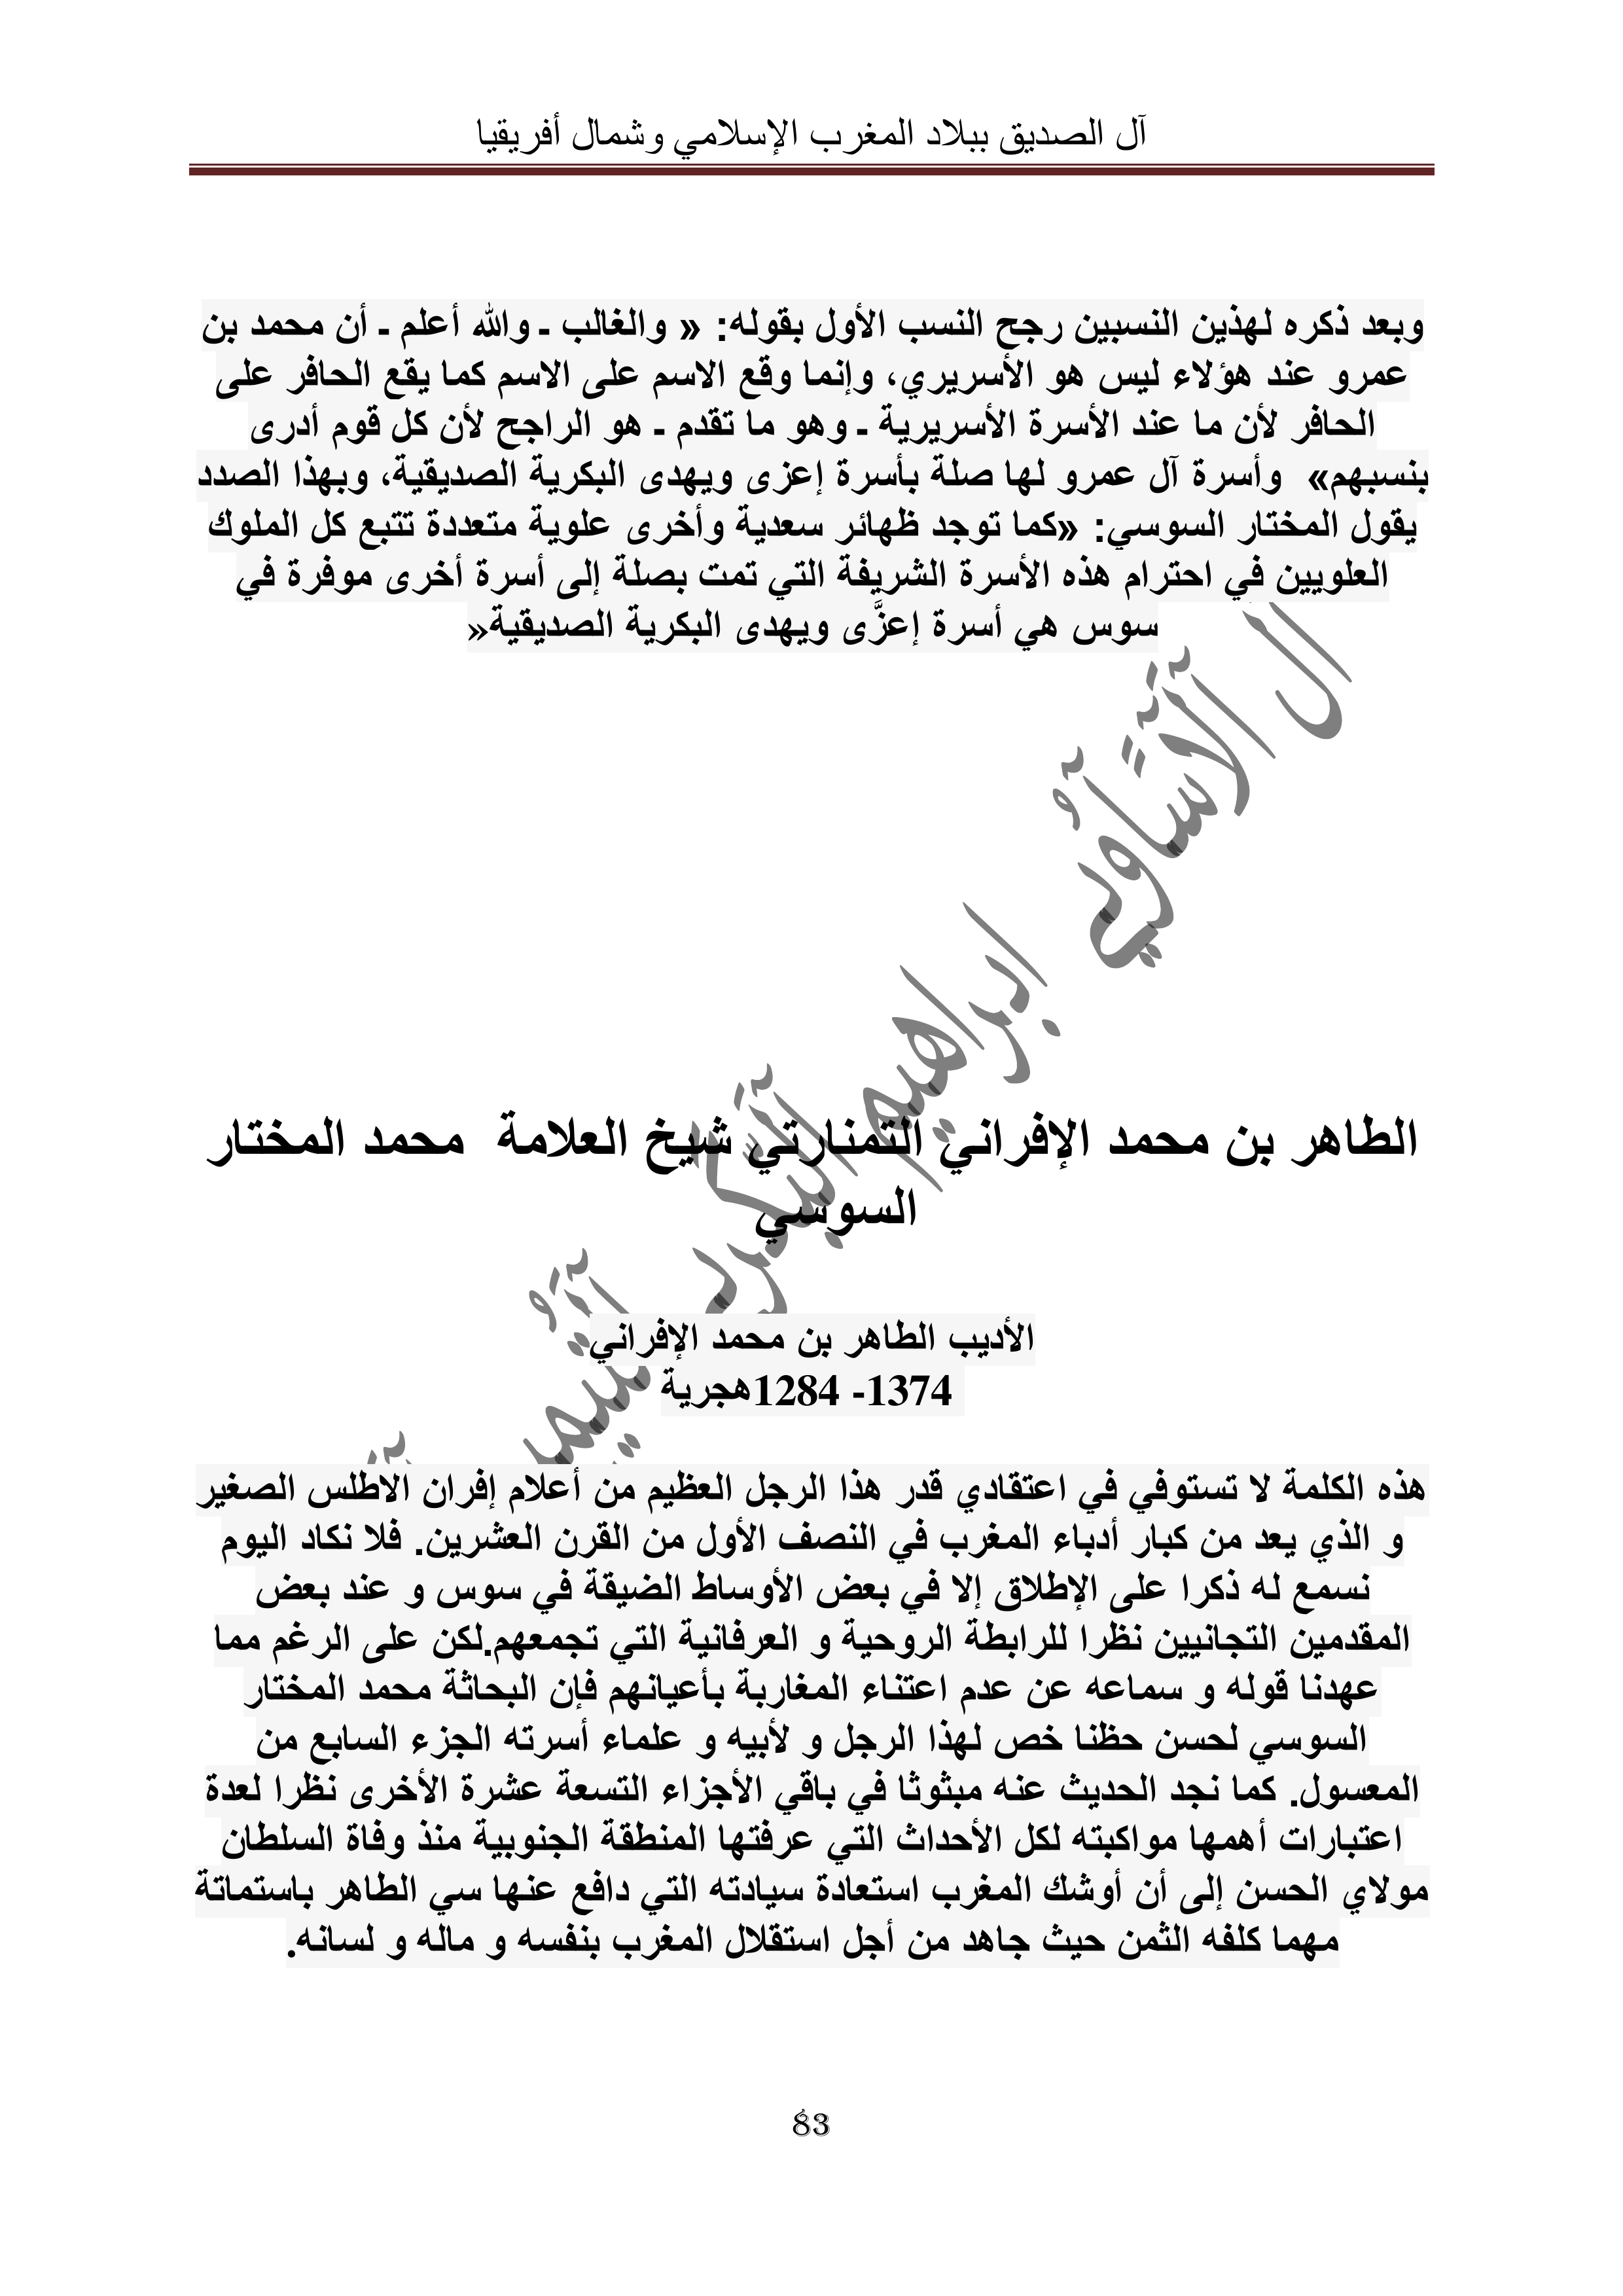 آل الصديق ببلاد المغرب الإسلامي وشمال أفريقيا
وبعد ذكره لهذين النسبين رجح النسب الأول بقوله: « والغالب ـ والله أعلم ـ أن محمد بن
عمرو عند هؤلاء ليس هو الأسريري، وإنما وقع الاسم على الاسم كما يقع الحافر على
الحافر لأن ما عند الأسرة الأسريرية ـ وهو ما تقدم ـ هو الراجح لأن كل قوم أدرى
بنسبهم» وأسرة آل عمرو لها صلة بأسرة إعزى ويهدى البكرية الصديقية، وبهذا الصدد
يقول المختار السوسي: «كما توجد ظهائر سعدية وأخرى علوية متعددة تتبع كل الملوك
العلويين في احترام هذه الأسرة الشريفة التي تمت بصلة إلى أسرة أخرى موفرة في
سوس هي أسرة إعزَّى ويهدى البكرية الصديقية«
الطاهر بن محمد الإفراني التمنارتي شيخ العلامة محمد المختار
السوسي
الأديب الطاهر بن محمد الإفراني
1374- 1284هجرية
هذه الكلمة لا تستوفي في اعتقادي قدر هذا الرجل العظيم من أعلام إفران الاطلس الصغير
و الذي يعد من كبار أدباء المغرب في النصف الأول من القرن العشرين. فلا نكاد اليوم
نسمع له ذكرا على الإطلاق إلا في بعض الأوساط الضيقة في سوس و عند بعض
المقدمين التجانيين نظرا للرابطة الروحية و العرفانية التي تجمعهم.لكن على الرغم مما
عهدنا قوله و سماعه عن عدم اعتناء المغاربة بأعيانهم فإن البحاثة محمد المختار
السوسي لحسن حظنا خص لهذا الرجل و لأبيه و علماء أسرته الجزء السابع من
المعسول. كما نجد الحديث عنه مبثوثا في باقي الأجزاء التسعة عشرة الأخرى نظرا لعدة
اعتبارات أهمها مواكبته لكل الأحداث التي عرفتها المنطقة الجنوبية منذ وفاة السلطان
مولاي الحسن إلى أن أوشك المغرب استعادة سيادته التي دافع عنها سي الطاهر باستماتة
مهما كلفه الثمن حيث جاهد من أجل استقلال المغرب بنفسه و ماله و لسانه.
83